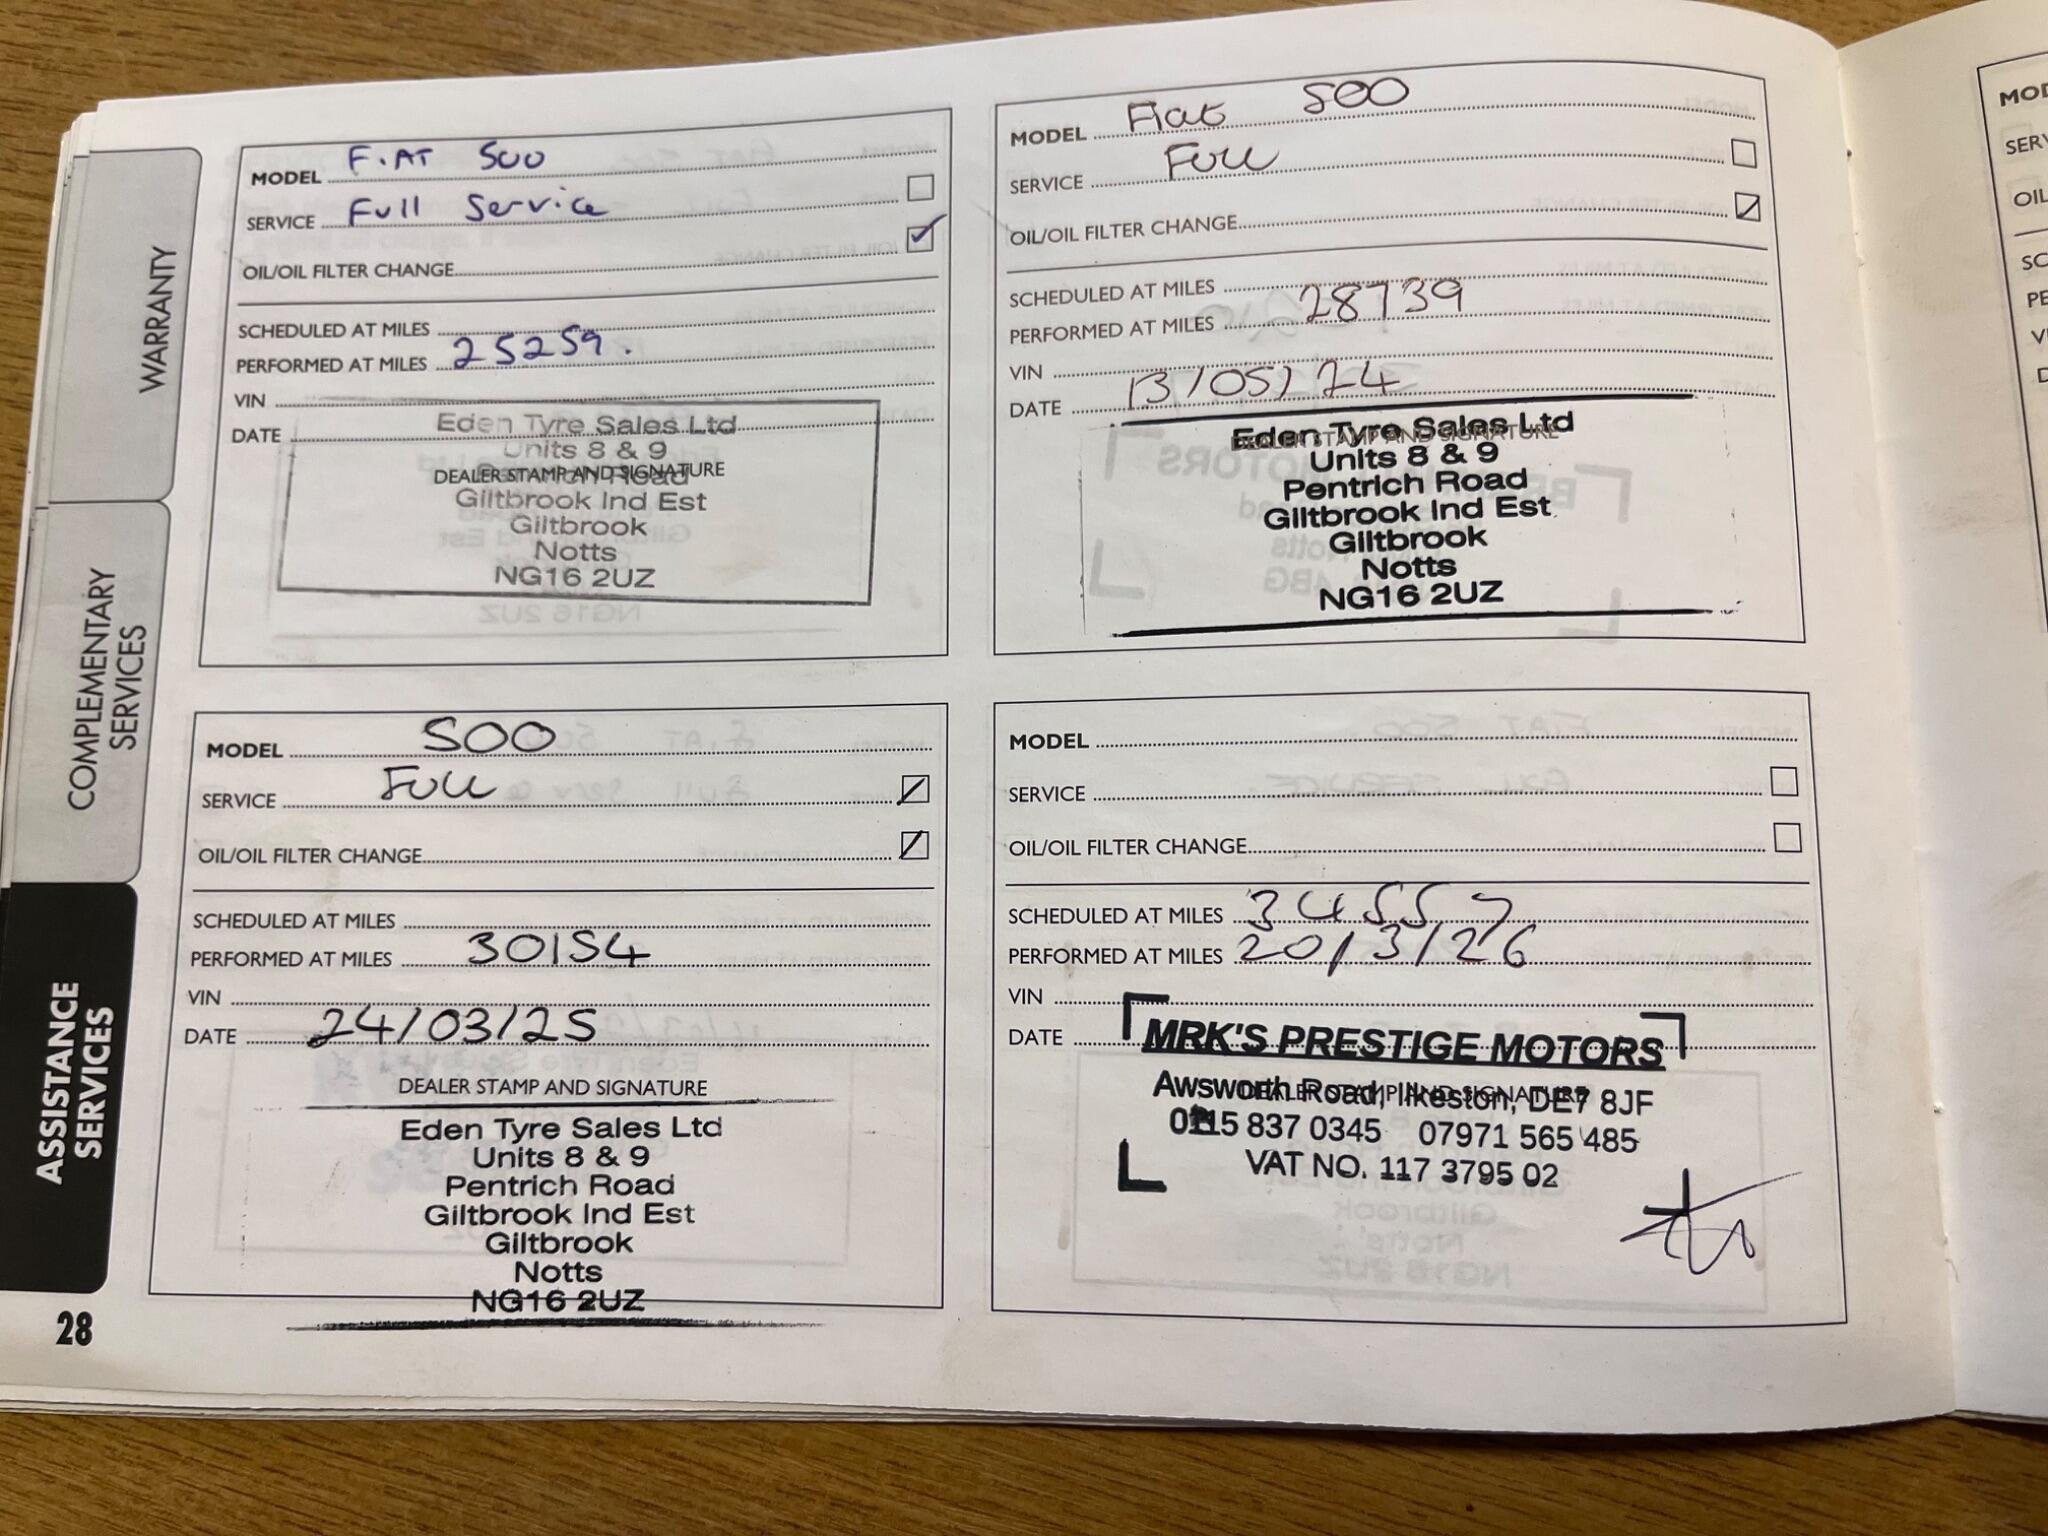 WARRANTY
COMPLEMENTARY
SERVICES
ASSISTANCE
SERVICES
28
MODEL F.AT 500
SERVICE Full Service
OIL/OIL FILTER CHANGE
SCHEDULED AT MILES
PERFORMED AT MILES 25259.
VIN
DATE
Eden Tyre Sales Ltd
Units 8 & 9
DEALER STAMP AND SIGNATURE
Road
Giltbrook Ind Est
Giltbrook
Notts
NG16 2UZ
MODEL Fiat 500
SERVICE Full
OIL/OIL FILTER CHANGE
SCHEDULED AT MILES
PERFORMED AT MILES 28739
VIN
DATE 13/05/24
DEALER STAMP AND SIGNATURE
Eden Tyre Sales Ltd
Units 8 & 9
Pentrich Road
Giltbrook Ind Est
Giltbrook
Notts
NG16 2UZ
MODEL 500
SERVICE Full
OIL/OIL FILTER CHANGE
SCHEDULED AT MILES
PERFORMED AT MILES 30154
VIN
DATE 24/03/25
DEALER STAMP AND SIGNATURE
Eden Tyre Sales Ltd
Units 8 & 9
Pentrich Road
Giltbrook Ind Est
Giltbrook
Notts
NG16 2UZ
MODEL
SERVICE
OIL/OIL FILTER CHANGE
SCHEDULED AT MILES 34557
PERFORMED AT MILES 20/3/26
VIN
DATE
MRK'S PRESTIGE MOTORS
DEALER STAMP AND SIGNATURE
Awsworth Road, Ilkeston, DE7 8JF
0115 837 0345 07971 565 485
VAT NO. 117 3795 02